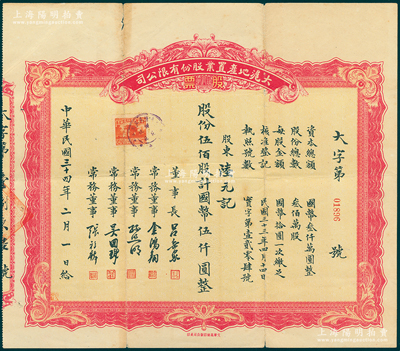 上海陽明拍賣
司公限有份股業置產地滬大
票股
大字第
01896
號
資本總額 國幣叁仟萬圓整
股份總數 叁佰萬股
每股金額 國幣拾圓一次繳足
核准登記 民國三十三年四月十四日
執照號數 實字第壹貳零肆號
股東 陸元記
股份伍佰股計國幣伍仟圓整
董事長
常務董事 金鴻翔
常務董事
常務董事
常務董事
中華民國三十四年二月一日給